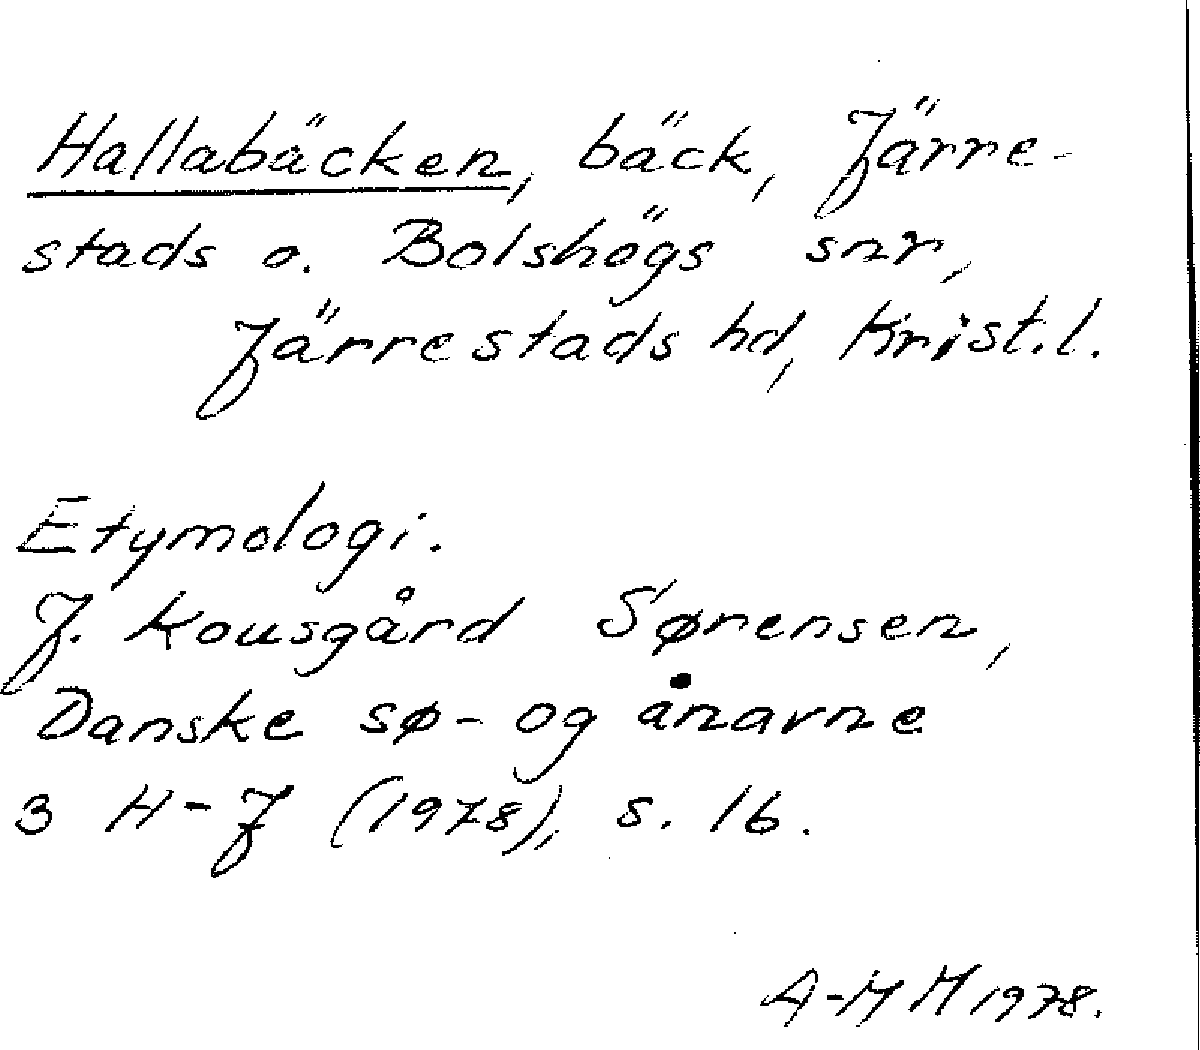 Hallabäcken, bäck, Järre-
stads o. Bolshögs snr,
Järrestads hd, Krist.l.
Etymologi.
J. Kousgård Sørensen,
Danske sø- og ånavne
3 H-J (1978), s. 16.
A-MH 1978.